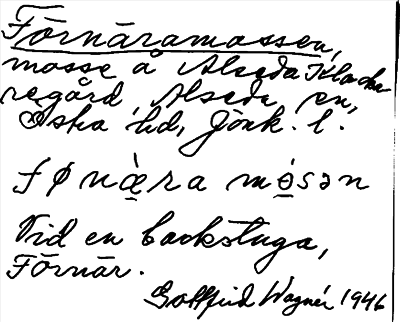 Förnäramossen,
mosse å Alseda Klocka
regård, Alseda sn,
Östra hd, Jönk. l.
fønæ̀ra mósən
Vid en backstuga,
Förnär.
Gottfrid Wagnér 1946